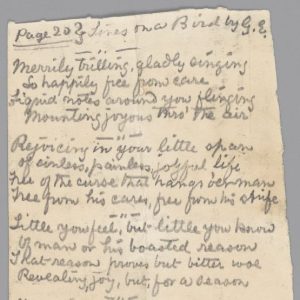 Page 203 Lines on a Bird by G. E.
Merrily trilling, gladly singing
So happily free from care
Liquid notes around you flinging
Mounting joyous thro' the air
Rejoicing in your little span
of sinless, painless, joyful life
Free of the curse that hangs o'er man
Free from his cares, free from his strife
Little you feel, but little you know
Of man or his boasted reason
That reason proves but bitter woe
Revealing, joy, but, for a season